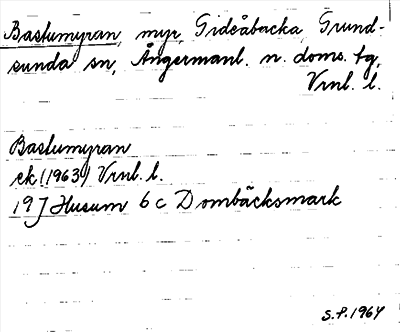 Bastumyran, myr, Gideåbacka, Grund-
sunda sn, Ångermanl. n. doms. tg,
Vrnl. l.
Bastumyran
ek (1963) Vrnl. l.
19J Husum 6 c Dombäcksmark
S.P. 1964